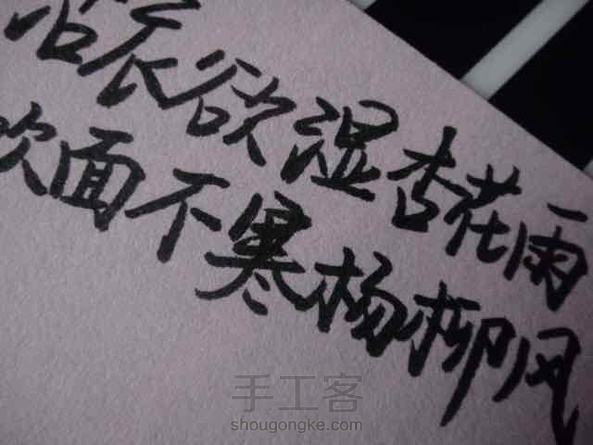 沾衣欲湿杏花雨
吹面不寒杨柳风
手工客
shougongke.com